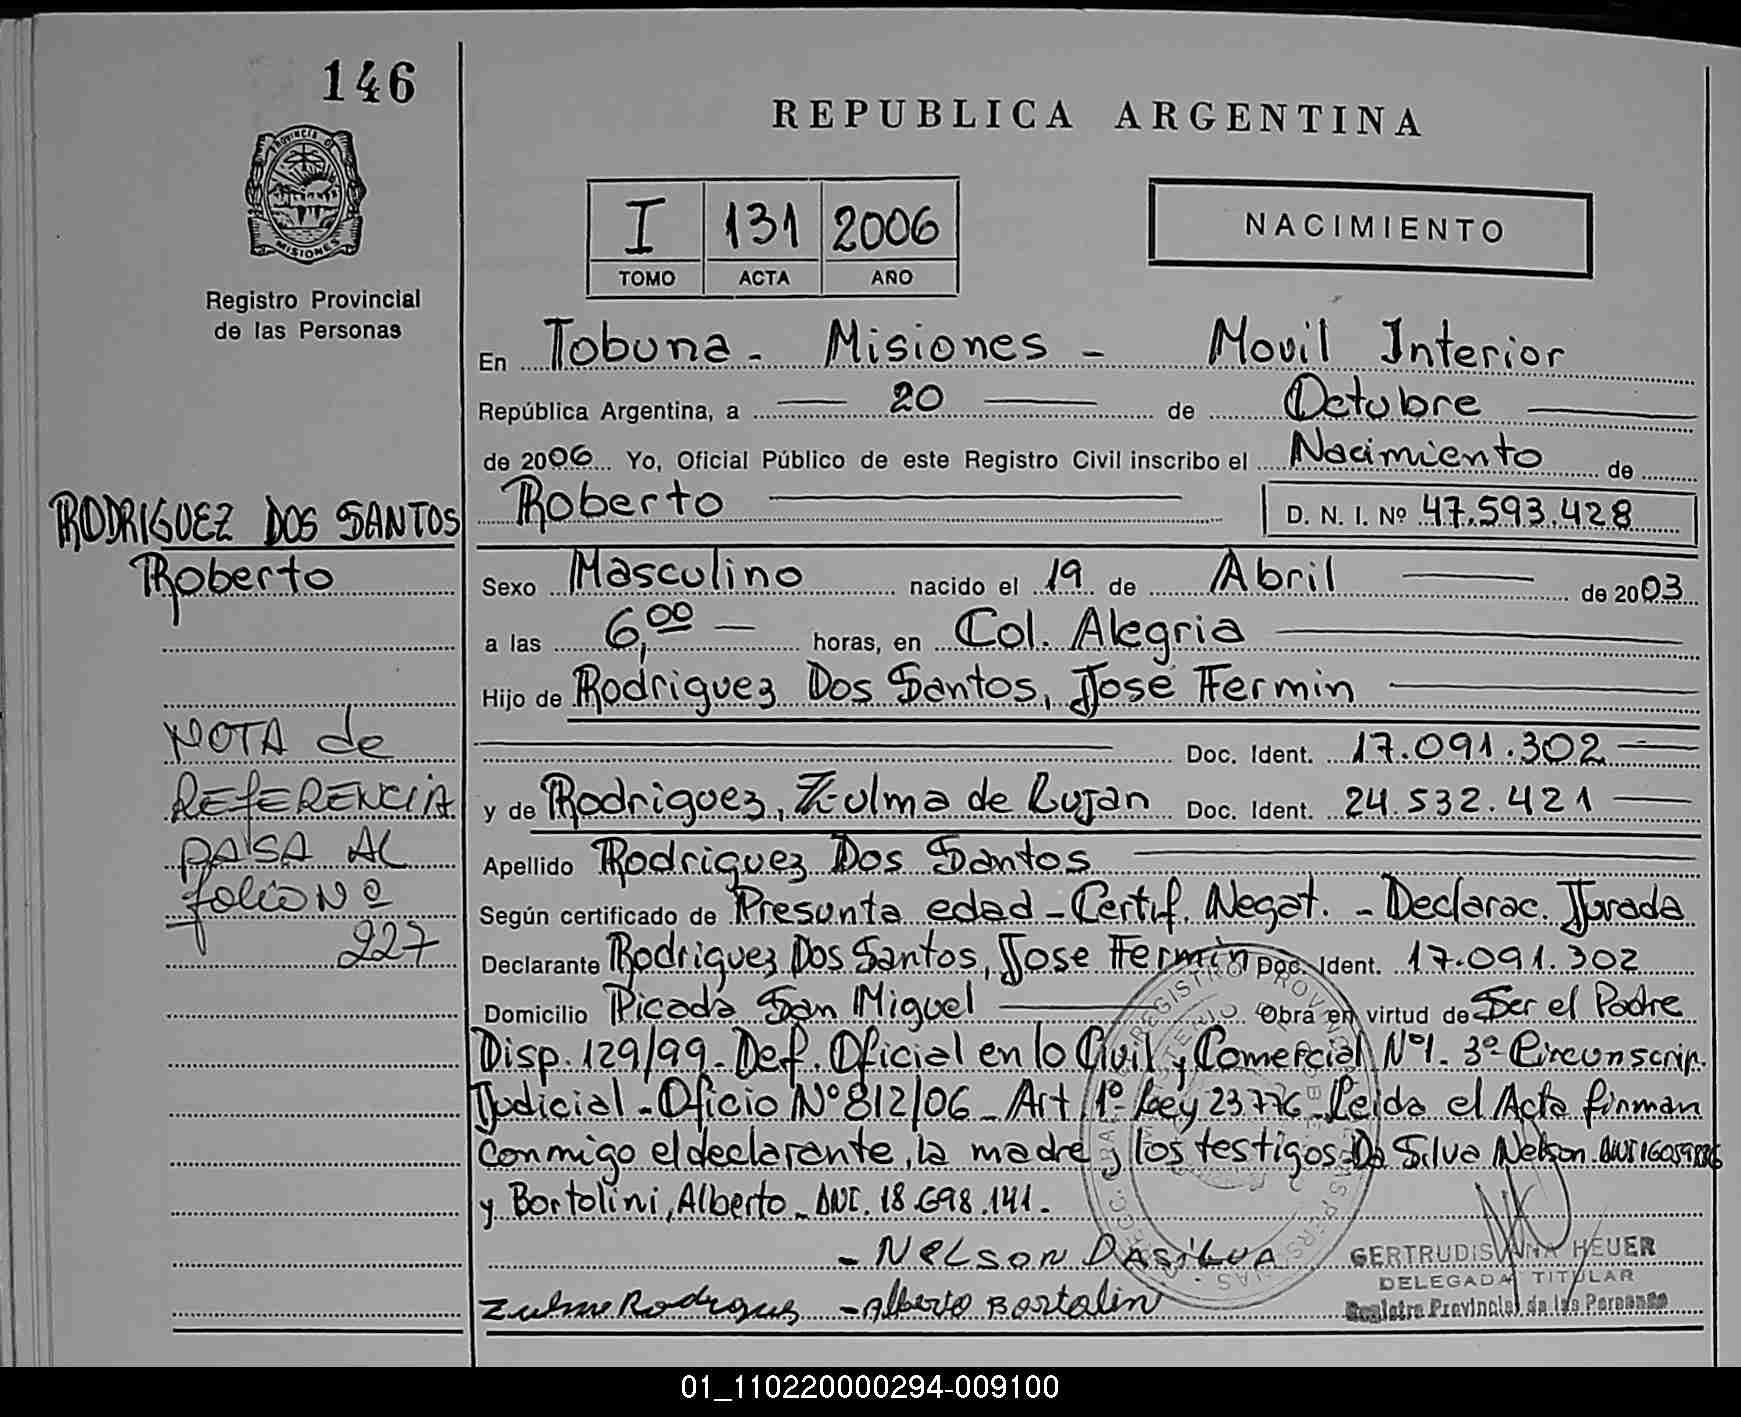 146
PROVINCIA DE
MISIONES
Registro Provincial
de las Personas
RODRIGUEZ DOS SANTOS
Roberto
NOTA de
REFERENCIA
PASA AL
folio Nº
227
REPUBLICA ARGENTINA
I 131 2006
TOMO ACTA AÑO
NACIMIENTO
En Tobuna - Misiones - Movil Interior
República Argentina, a 20 de Octubre
de 2006 Yo, Oficial Público de este Registro Civil inscribo el Nacimiento de
Roberto D. N. I. Nº 47.593.428
Sexo Masculino nacido el 19 de Abril de 2003
a las 6,00 horas, en Col. Alegria
Hijo de Rodriguez Dos Santos, Jose Fermin
Doc. Ident. 17.091.302
y de Rodriguez, Zulma de Lujan Doc. Ident. 24.532.421
Apellido Rodriguez Dos Santos
Según certificado de Presunta edad - Certif. Negat. - Declarac. Jurada
Declarante Rodriguez Dos Santos, Jose Fermin Doc. Ident. 17.091.302
Domicilio Picada San Miguel Obra en virtud de Ser el Padre
Disp. 129/99 - Def. Oficial en lo Civil y Comercial Nº1 - 3º Circunscrip.
Judicial - Oficio Nº 812/06 - Art 1º Ley 23776 - Leida el Acta firman
conmigo el declarante, la madre y los testigos Da Silva Nelson DNI
y Bortolini, Alberto - DNI. 18.698.141 -
- NELSON DASILVA
Zulma Rodrigues - Alberto Bortolin
GERTRUDIS ANA HEUER
DELEGADA TITULAR
Registro Provincial de las Personas
01_110220000294-009100